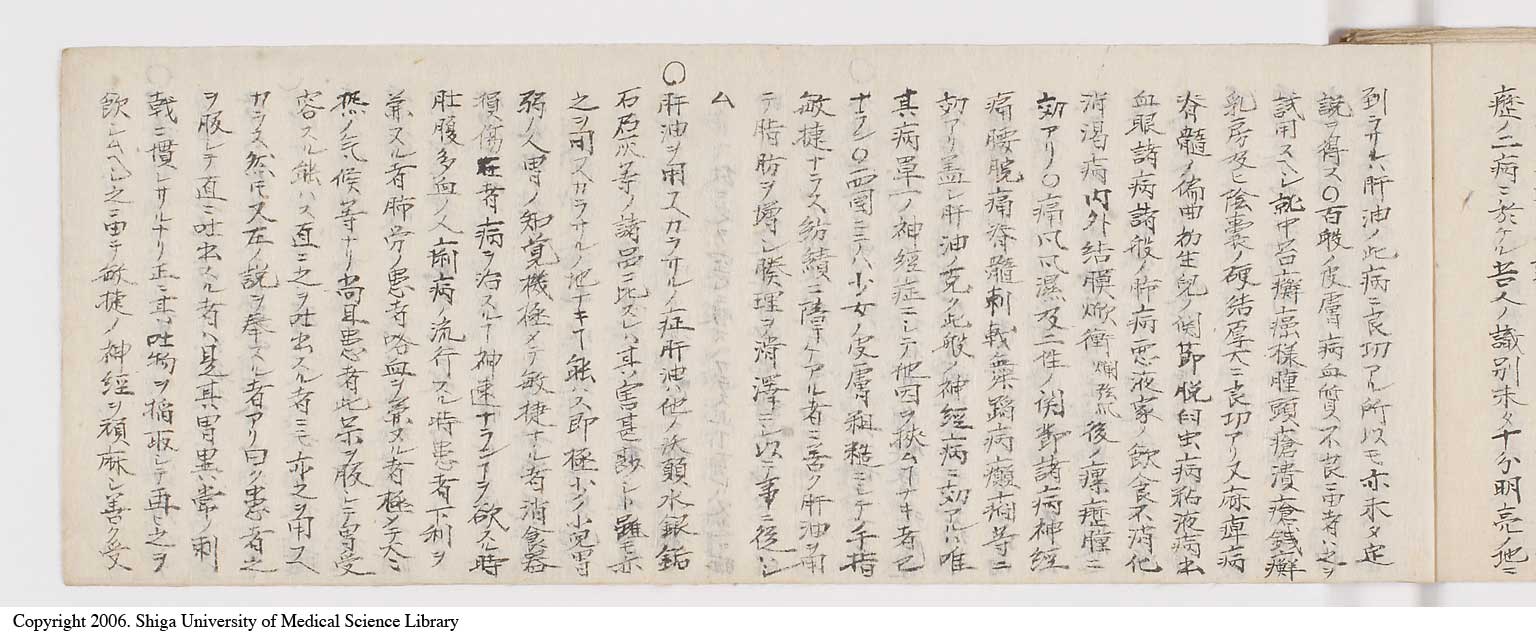 癧ノ二病ニ於ケル吾人ノ識別未タ十分明亮ノ地ニ
到ラサルハ肝油ノ此病ニ良功アル所以モ亦未タ定
説ヲ得ス〇百般ノ皮膚病血質不良ニ由者ハ之ヲ
試用スヘシ就中苔癬癌様腫頭瘡潰瘡錢癬
乳房及ヒ陰囊ノ硬結厚大ニ良功アリ又麻痺病
脊髓ノ偏曲初生児ノ関節脱臼虫病粘液病出
血眼諸病諸般ノ肺病悪液家ノ飲食不消化
消渇病内外結膜焮衝爛弦風後ノ瘰癧腫ニ
効アリ〇痛風風濕及ニ性ノ関節諸病神経
痛腰脱痛脊髓刺戟舞蹈病癲癇等ニ
効アリ蓋シ肝油ノ克ク此般ノ神經病ニ効アルハ唯
其病單一ノ神經症ニシテ他因ヲ挾ムナキ者已
ナラン〇四國ニハ少女ノ皮膚粗糙ニシテ手指
敏捷ナラス紡績ニ障ケアル者ニ善ク肝油ヲ用
テ脂肪ヲ増シ腠理ヲ滑澤ニシ以テ事ニ從ハシ
ム
〇肝油ヲ用ユカラサルノ症肝油ハ他ノ沃顛水銀鉐
石石灰等ノ諸品ニ比スレハ其ノ害甚尠シト雖モ亦
之ヲ用ユカラサルノ地ナキ能ハス即極少ノ小児胃
弱ノ人胃ノ知覚機極メテ敏捷ナル者消食器
損傷在者病ヲ治スルヿ神速ナランヿヲ欲スル時
肚腹多血ノ人痢病ノ流行スル時患者下利ヲ
兼スル者肺労ノ患者咯血ヲ兼スル者極メテ大ニ
熱ノ気候等ナリ尚且患者此品ヲ服シテ胃受
容スル能ハス直ニ之ヲ吐出スル者ニモ亦之ヲ用ユ
カラス然トモ又左ノ説ヲ擧スル者アリ曰ク患者之
ヲ服シテ直ニ吐出スル者ハ是其胃異常ノ刺
戟ニ慣レサルナリ正ニ其吐物ヲ掬取シテ再ヒ之ヲ
飲シムヘシ之ニ由テ敏捷ノ神經ヲ頑麻シ善ク受
Copyright 2006. Shiga University of Medical Science Library